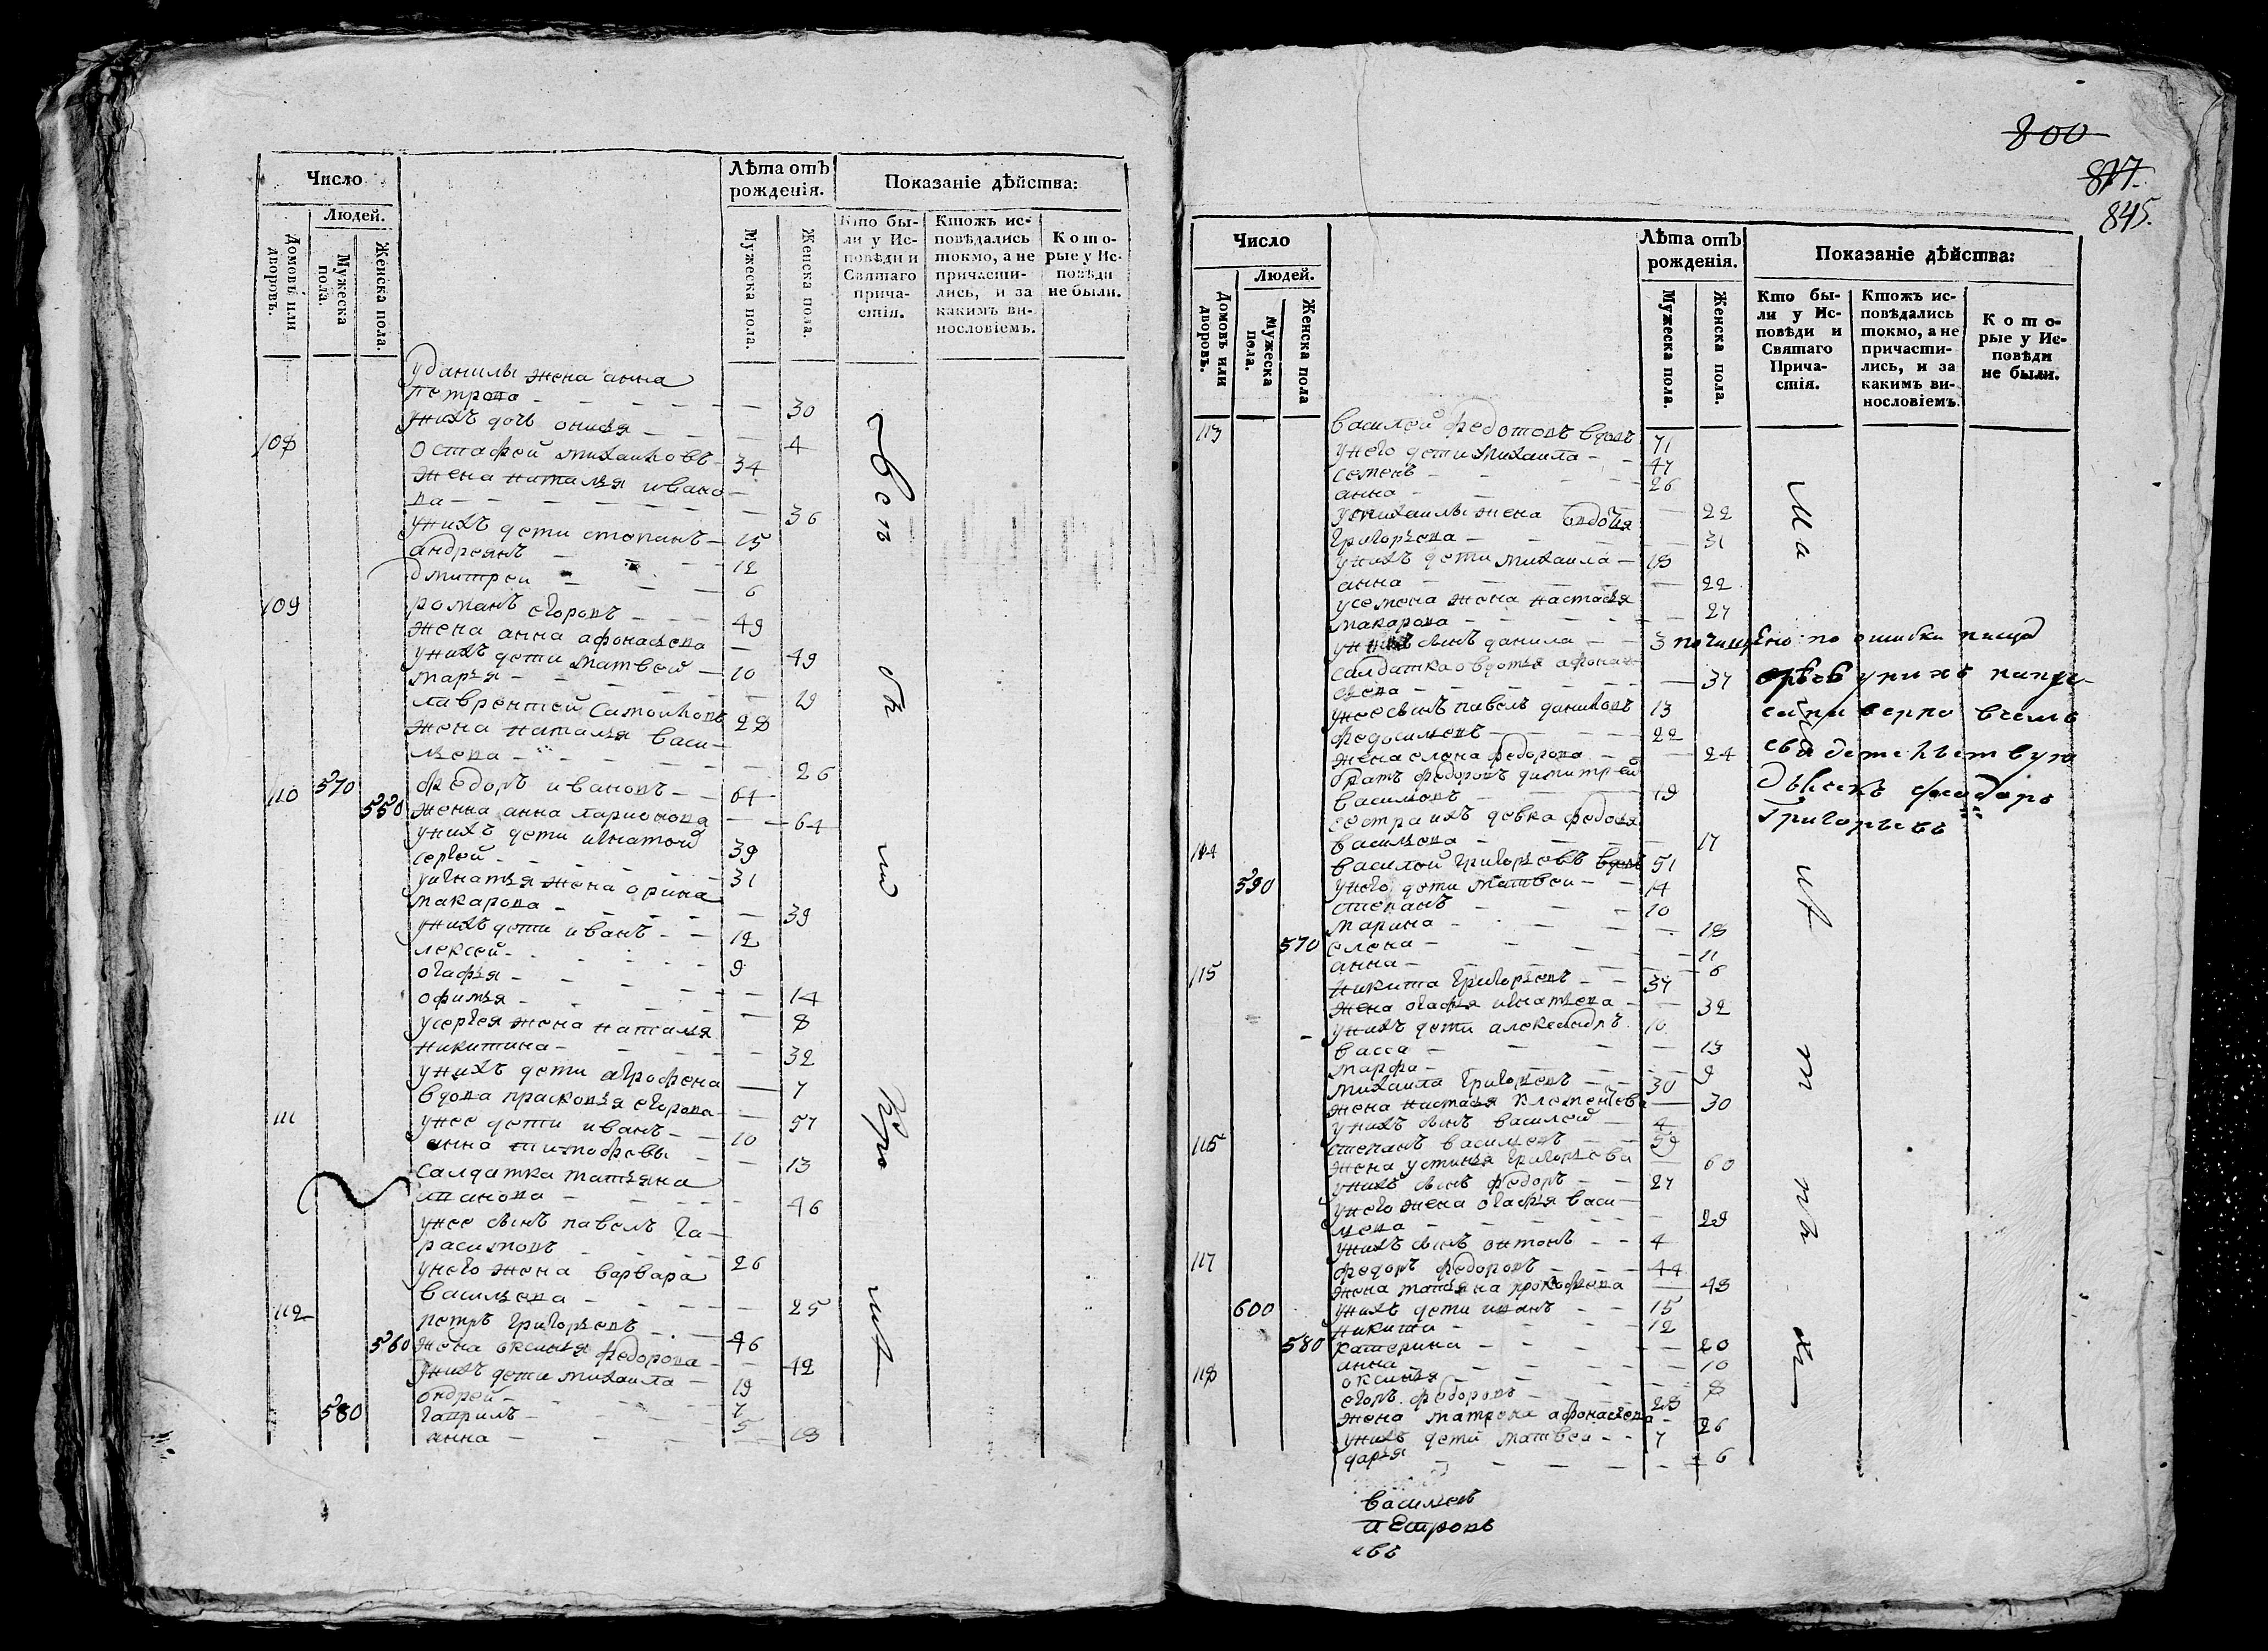 Число
Людей.
Домовъ или дворовъ.
Мужеска пола.
Женска пола.
Лѣта отъ рожденія.
Мужеска пола.
Женска пола.
Показаніе дѣйства:
Кто бы-
ли у Ис-
повѣди и
Святаго
прича-
стія.
Ктожъ ис-
повѣдались
токмо, а не
причасти-
лись, и за
какимъ ви-
нословіемъ.
Кото-
рые у Ис-
повѣди
не были.
уданилы жена анна
петрова 30
унихъ дочь онисья 4
108 остафей михаиловъ 34
жена наталья ивано
ва 36
унихъ дети степанъ 15
андреянъ 12
дмитреи 6
109 романъ егоровъ 49
жена анна афонасьева 49
унихъ дети матвей 10
марья 19
лаврентей самоиловъ 28
жена наталья васи-
льева 26
110 570 федоръ ивановъ 64
550 женна анна ларионова 64
унихъ дети игнатей 39
сергей 31
уигнатья жена орина
макарова 39
унихъ дети иванъ 12
лексей 9
огафья 14
офимья 8
усергея жена наталья
никитина 32
унихъ дети аграфена 7
111 вдова прасковья егорова 57
унее дети иванъ 10
анна тимофевы 13
салдатка татьяна
унее сынъ павелъ га-
расимовъ 26
унего жена варвара
васильева 25
112 петръ григорьевъ 46
560 жена оксинья федорова 42
унихъ дети михаила 19
ондрей 7
580 гаврилъ 5
анна 13
800
817.
845.
Число
Людей.
Домовъ или дворовъ.
Мужеска пола.
Женска пола
Лѣта отъ рожденія.
Мужеска пола.
Женска пола.
Показаніе дѣйства:
Кто бы-
ли у Ис-
повѣди и
Святаго
Прича-
стія.
Ктожъ ис-
повѣдались
токмо, а не
причасти-
лись, и за
какимъ ви-
нословіемъ.
Кото-
рые у Ис-
повѣди
не были.
113 василей федотовъ вдовъ 71
унего дети михаила 47
семенъ 26
анна 22
умихаилы жена овдотья
григорьева 31
унихъ дети михаила 13
анна 22
усемена жена настасья
макарова 27
унихъ сынъ данила 3 почищено по ошибки писца
салдатка овдотья афона
сьева 37
унее сынъ павелъ даниловъ 13
жена елена федорова 24
братъ федоровъ димитрей
васильевъ 19
сестра ихъ девка федосья
васильева 17
свидетельствую
дьячекъ феодоръ
Григорьевъ
114 василей григорьевъ вдовъ 51
590 унего дети матвеи 14
степанъ 10
марина 18
570 елена 11
анна 6
115 никита григорьевъ 37
жена огафья игнатьева 32
унихъ дети александръ 10
васса 13
марфа 9
михаила григорьевъ 30
жена настасья клементьева 30
унихъ сынъ василей 4
116 степанъ васильевъ 59
жена устинья григорьева 60
унихъ сынъ федоръ 27
унего жена огафья васи-
льева 29
унихъ сынъ онтонъ 4
117 федоръ федоровъ 44
жена татьяна прокофьева 43
600 унихъ дети иванъ 15
никита 12
580 катерина 20
анна 10
оксинья 8
118 егоръ федоровъ 28
жена матрена афонасьева 26
унихъ дети матвеи 7
дарья 6
васильевъ
петровъ
евъ